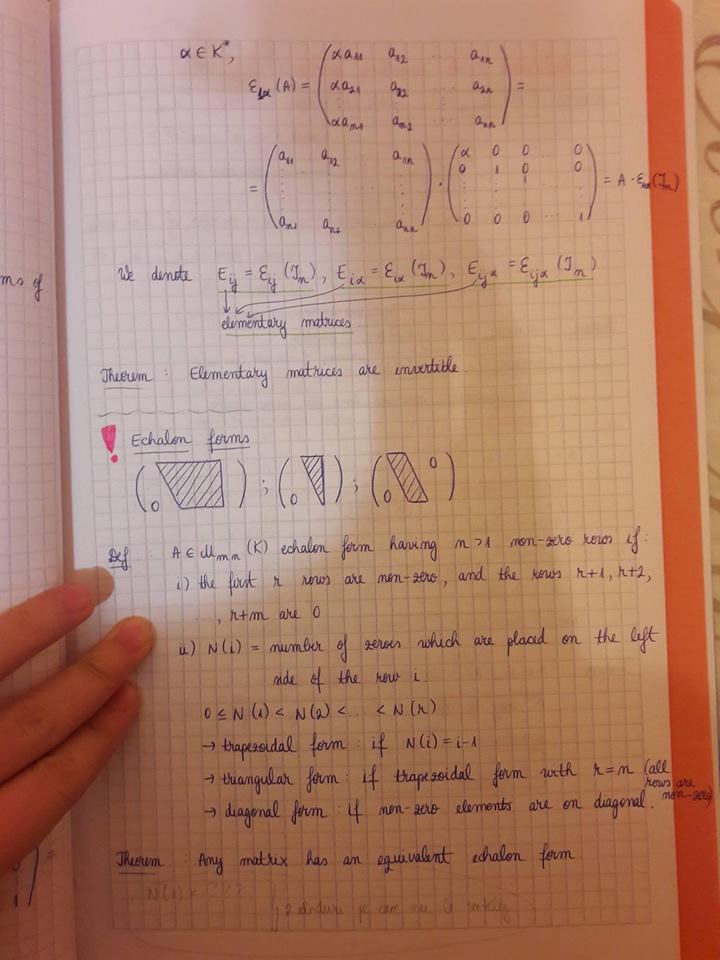 α ∈ K*,
ε₁α (A) = ( αa₁₁ a₁₂ ... a₁n
αa₂₁ a₂₂ ... a₂n
αam₁ am₂ ... ann ) =
= ( a₁₁ a₁₂ a₁n
am₁ an₂ ann ) · ( α 0 0 0
0 1 0 ... 0
1
0 0 0 ... 1 ) = A · (In)
We denote Eij = εij (In), Eiα = εiα (In), Eijα = εijα (In)
elementary matrices
Theorem : Elementary matrices are invertable.
! Echalon forms
( 0 ) ; ( 0 ) ; ( 0 0 )
Def. : A ∈ Mmn (K) echalon form having n>1 non-zero rows if:
i) the first r rows are non-zero, and the rows r+1, r+2,
..., r+m are 0
ii) N(i) = number of zeroes which are placed on the left
side of the row i
0 ≤ N(1) < N(2) < ... < N(r)
→ trapezoidal form : if N(i) = i-1
→ triangular form : if trapezoidal form with r=n (all
rows are
non-zero)
→ diagonal form : if non-zero elements are on diagonal.
Theorem : Any matrix has an equivalent echalon form
N(1) = ???
pe care nu
ms of